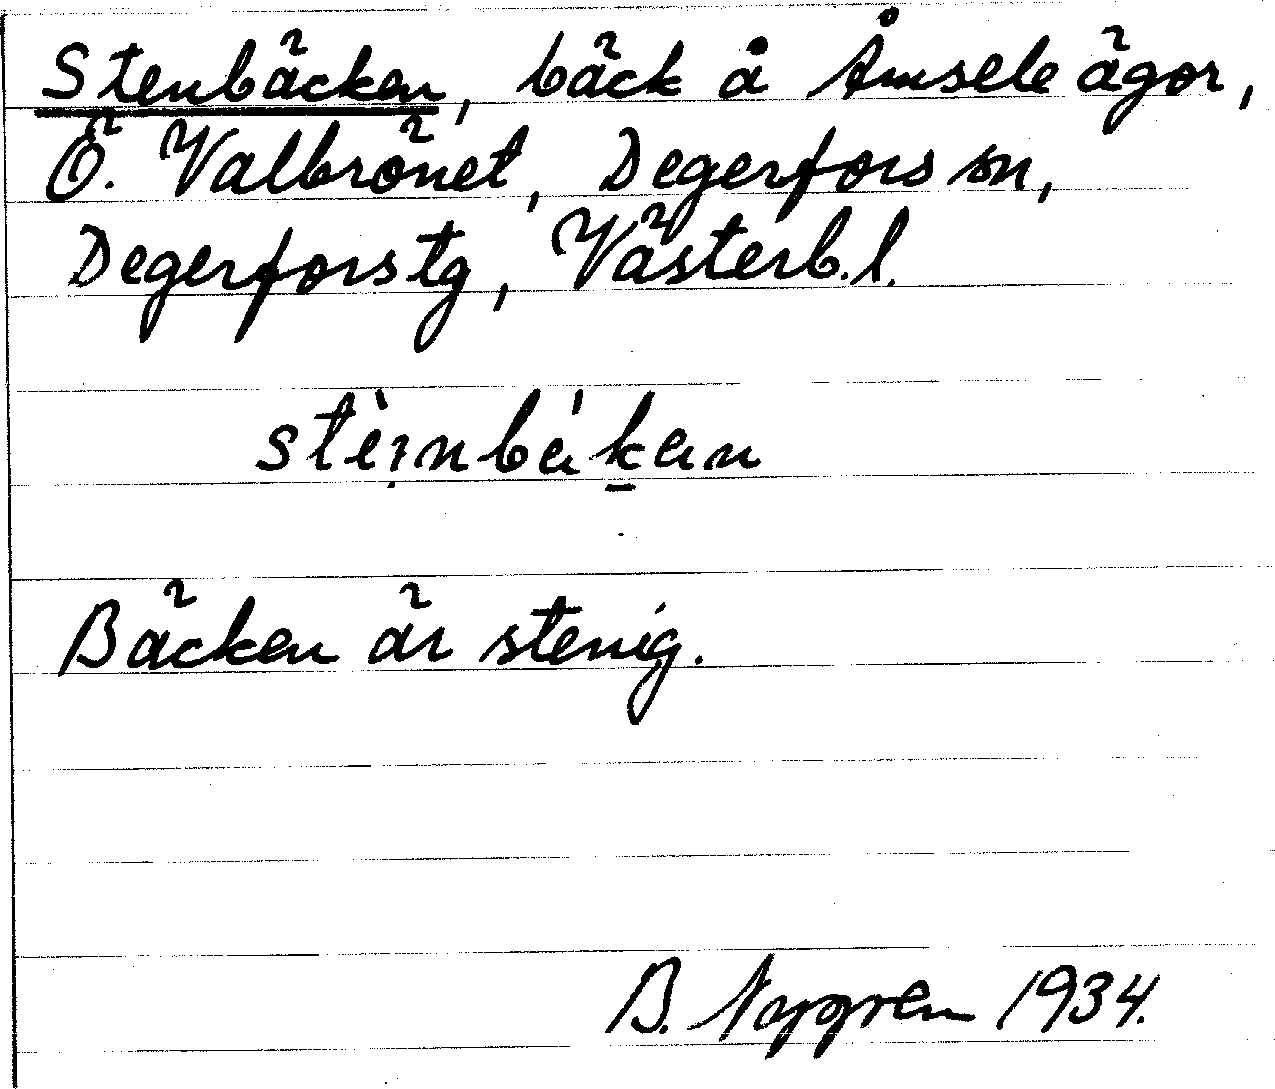 Stenbäcken, bäck å Åmsele ägor,
Ö. Valbrönet, Degerfors sn,
Degerfors tg, Västerb. l.
stèi̩nbék̠en
Bäcken är stenig.
B. Nygren 1934.